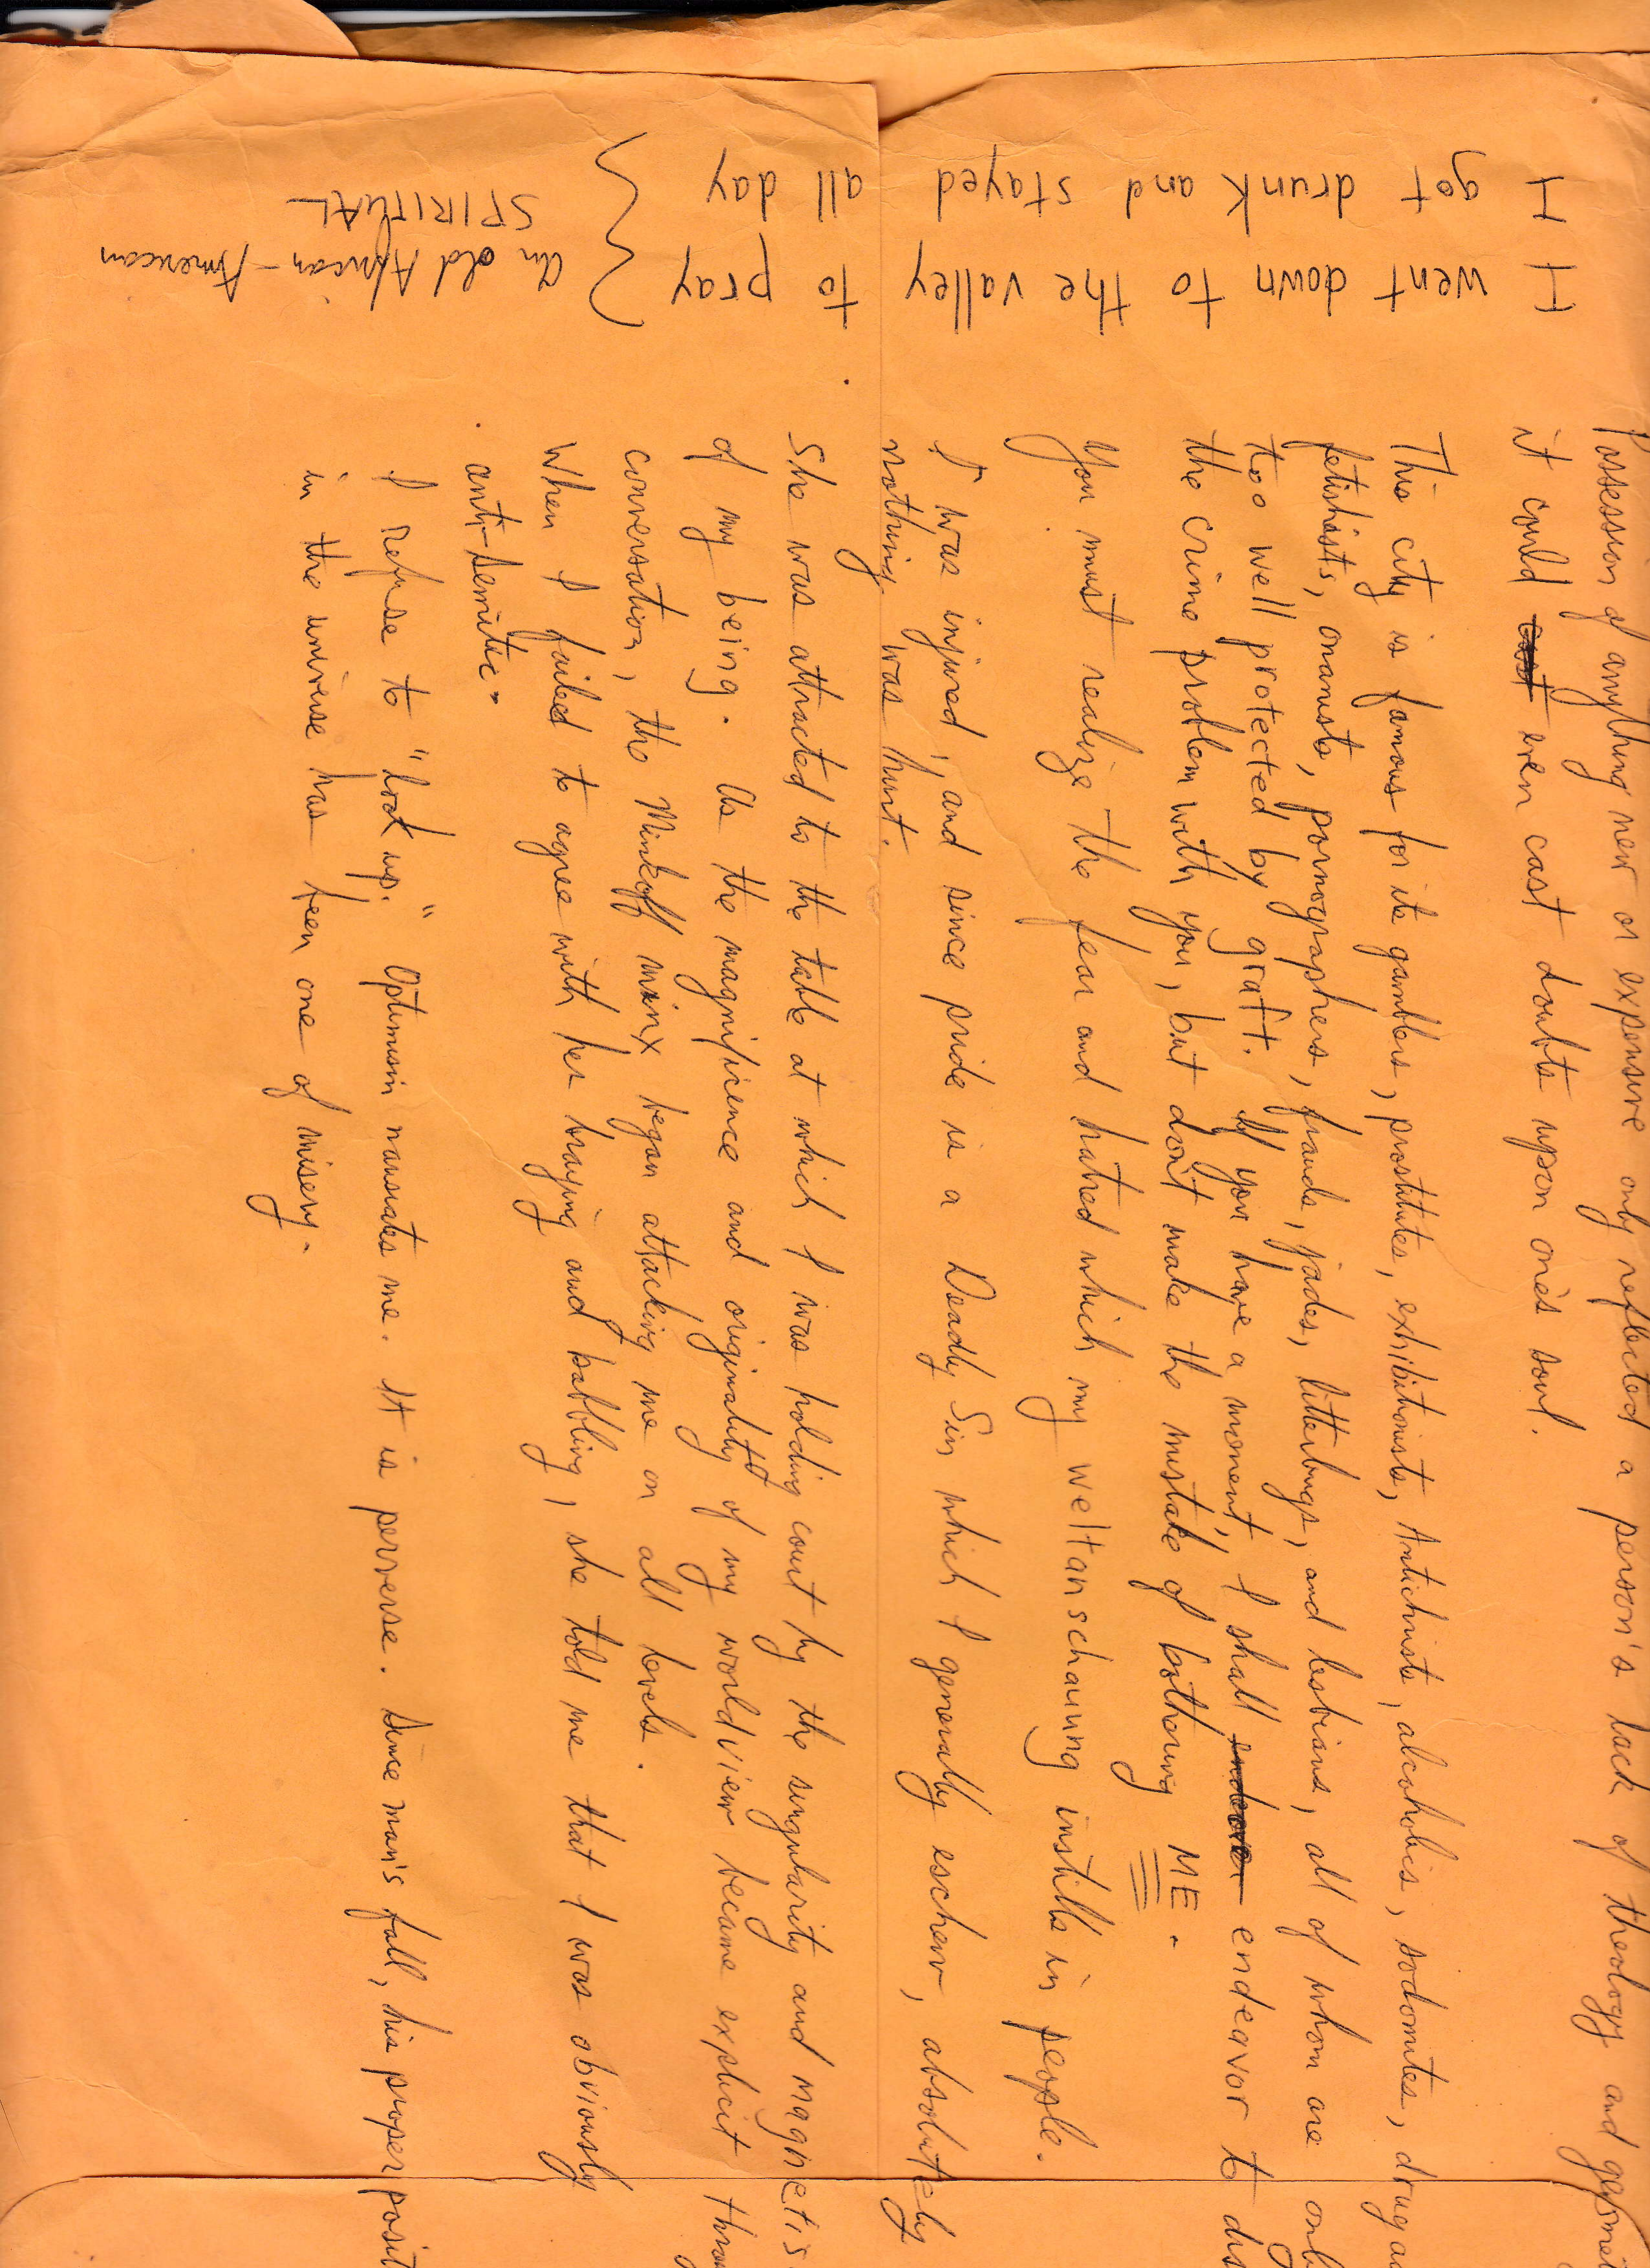 Possession of anything new or expensive only reflected a person's lack of theology and geomet
it could cast even cast doubts upon one's soul.
This city is famous for its gamblers, prostitutes, exhibitionists, Antichrists, alcoholics, sodomites, drug ad
fetishists, onanists, pornographers, frauds, jades, litterbugs, and lesbians, all of whom are only
too well protected by graft. If you have a moment, I shall endeavor endeavor to dis
the crime problem with you, but don't make the mistake of bothering ME.
You must realize the fear and hatred which my weltanschauung instills in people.
I was injured, and since pride is a Deadly Sin which I generally eschew, absolutely
nothing was hurt.
She was attracted to the table at which I was holding court by the singularity and magnetis
of my being. As the magnificence and originality of my worldview became explicit throu
conversation, the Minkoff minx began attacking me on all levels.
When I failed to agree with her braying and babbling, she told me that I was obviously
anti-semitic.
I refuse to "look up." Optimism nauseates me. It is perverse. Since man's fall, his proper posit
in the universe has been one of misery.
I went down to the valley to pray
I got drunk and stayed all day
an old African-American
SPIRITUAL